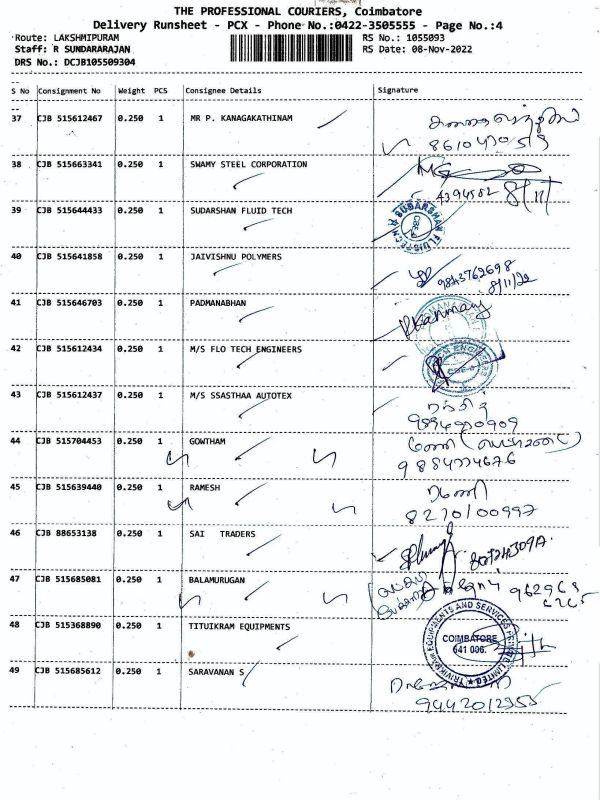 THE PROFESSIONAL COURIERS, Coimbatore
Delivery Runsheet - PCX - Phone No.:0422-3505555 - Page No.:4
Route: LAKSHMIPURAM RS No.: 1055093
Staff: R SUNDARARAJAN RS Date: 08-Nov-2022
DRS No.: DCJB105509304
S No Consignment No Weight PCS Consignee Details Signature
37 CJB 515612467 0.250 1 MR P. KANAGAKATHINAM
38 CJB 515663341 0.250 1 SWAMY STEEL CORPORATION
4394582 8/11
39 CJB 515644433 0.250 1 SUDARSHAN FLUID TECH
SUDARSHAN FLUID TECH CBE-4
40 CJB 515641858 0.250 1 JAIVISHNU POLYMERS
9843762698
8/11/22
41 CJB 515646703 0.250 1 PADMANABHAN
42 CJB 515612434 0.250 1 M/S FLO TECH ENGINEERS
43 CJB 515612437 0.250 1 M/S SSASTHAA AUTOTEX
44 CJB 515704453 0.250 1 GOWTHAM
45 CJB 515639440 0.250 1 RAMESH
ரமணி
8270100997
46 CJB 88653138 0.250 1 SAI TRADERS
47 CJB 515685081 0.250 1 BALAMURUGAN
48 CJB 515368890 0.250 1 TITUIKRAM EQUIPMENTS
TRIVIKRAM EQUIPMENTS AND SERVICES PRIVATE LIMITED
COIMBATORE
641 006.
49 CJB 515685612 0.250 1 SARAVANAN S